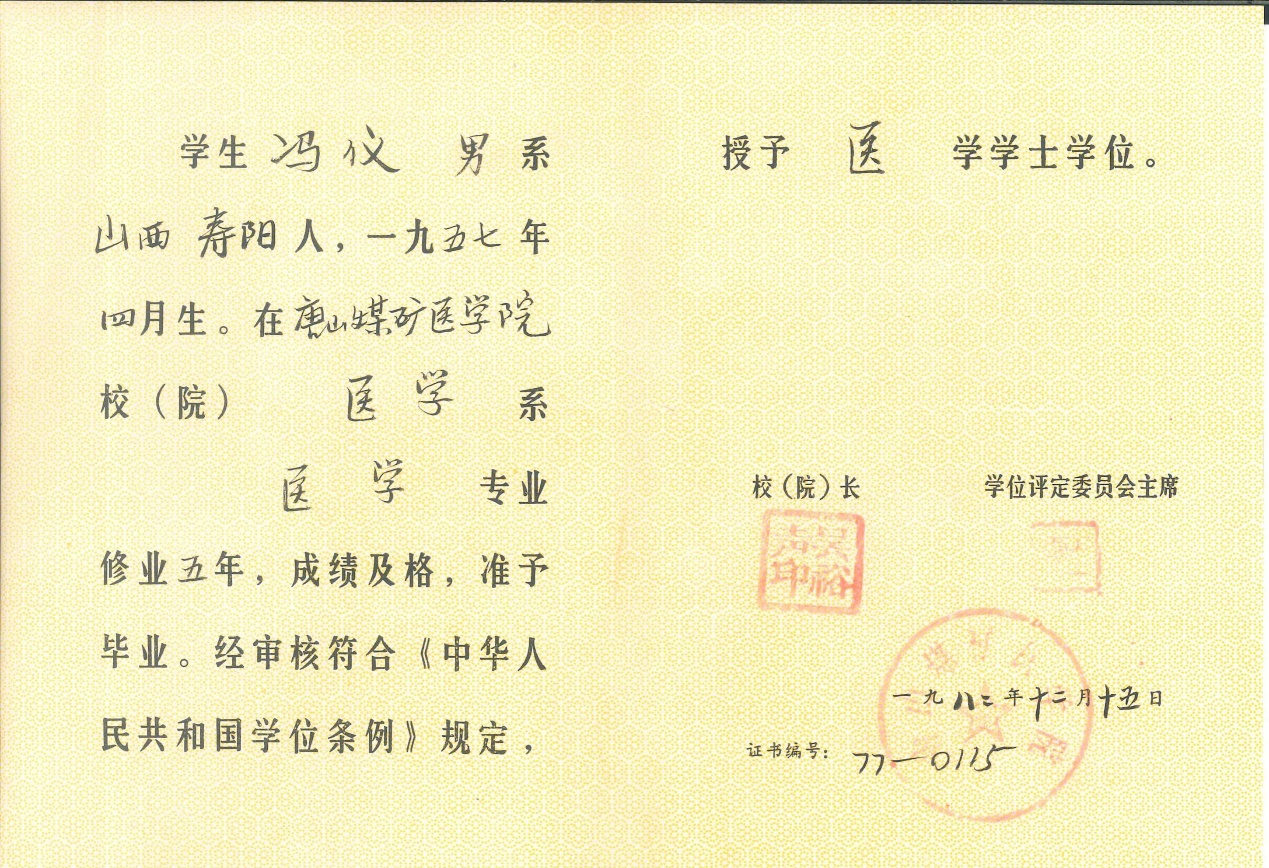 学生 冯仪 男 系
山西 寿阳 人，一九五七年
四月生。在唐山煤矿医学院
校（院） 医学 系
医学 专业
修业五年，成绩及格，准予
毕业。经审核符合《中华人
民共和国学位条例》规定，
授予 医 学学士学位。
校（院）长
学位评定委员会主席
吴裕
印
一九八二年十二月十五日
证书编号：77—0115